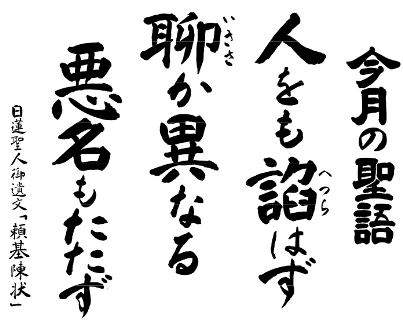 今月の聖語
人をも諂はず
聊か異なる
悪名もたたず
日蓮聖人御遺文「頼基陳状」